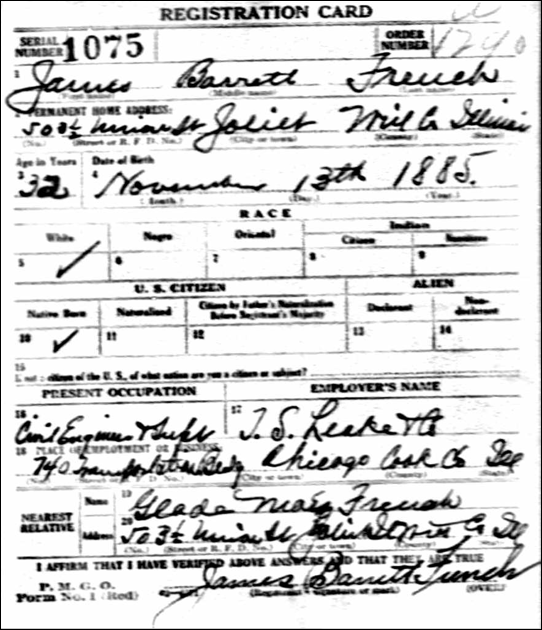 REGISTRATION CARD
SERIAL NUMBER 1075 ORDER NUMBER 1290
1 James Barrett French
(First name) (Middle name) (Last name)
2 PERMANENT HOME ADDRESS:
503½ Union St Joliet Will Co Illinois
(No.) (Street or R. F. D. No.) (City or town) (County) (State)
Age in Years Date of Birth
3 32 4 November 13th 1885.
(Month.) (Day.) (Year.)
RACE
White Negro Oriental Indian
Citizen Noncitizen
5 ✓ 6 7 8 9
U. S. CITIZEN ALIEN
Native Born Naturalized Citizen by Father's Naturalization Before Registrant's Majority Declarant Non-declarant
10 ✓ 11 12 13 14
15
If not a citizen of the U. S., of what nation are you a citizen or subject?
PRESENT OCCUPATION EMPLOYER'S NAME
16 Civil Engineer & Supt 17 T. S. Leake & Co
18 PLACE OF EMPLOYMENT OR BUSINESS:
740 Transportation Bldg Chicago Cook Co Ill
(No.) (Street or R. F. D. No.) (City or town) (County) (State)
NEAREST RELATIVE Name 19 Glada Mary French
Address 20 503½ Union St Joliet Will Co Ill
(No.) (Street or R. F. D. No.) (City or town) (County) (State)
I AFFIRM THAT I HAVE VERIFIED ABOVE ANSWERS AND THAT THEY ARE TRUE
P. M. G. O.
Form No. 1 (Red) James Barrett French
(Registrant's signature or mark) (OVER)